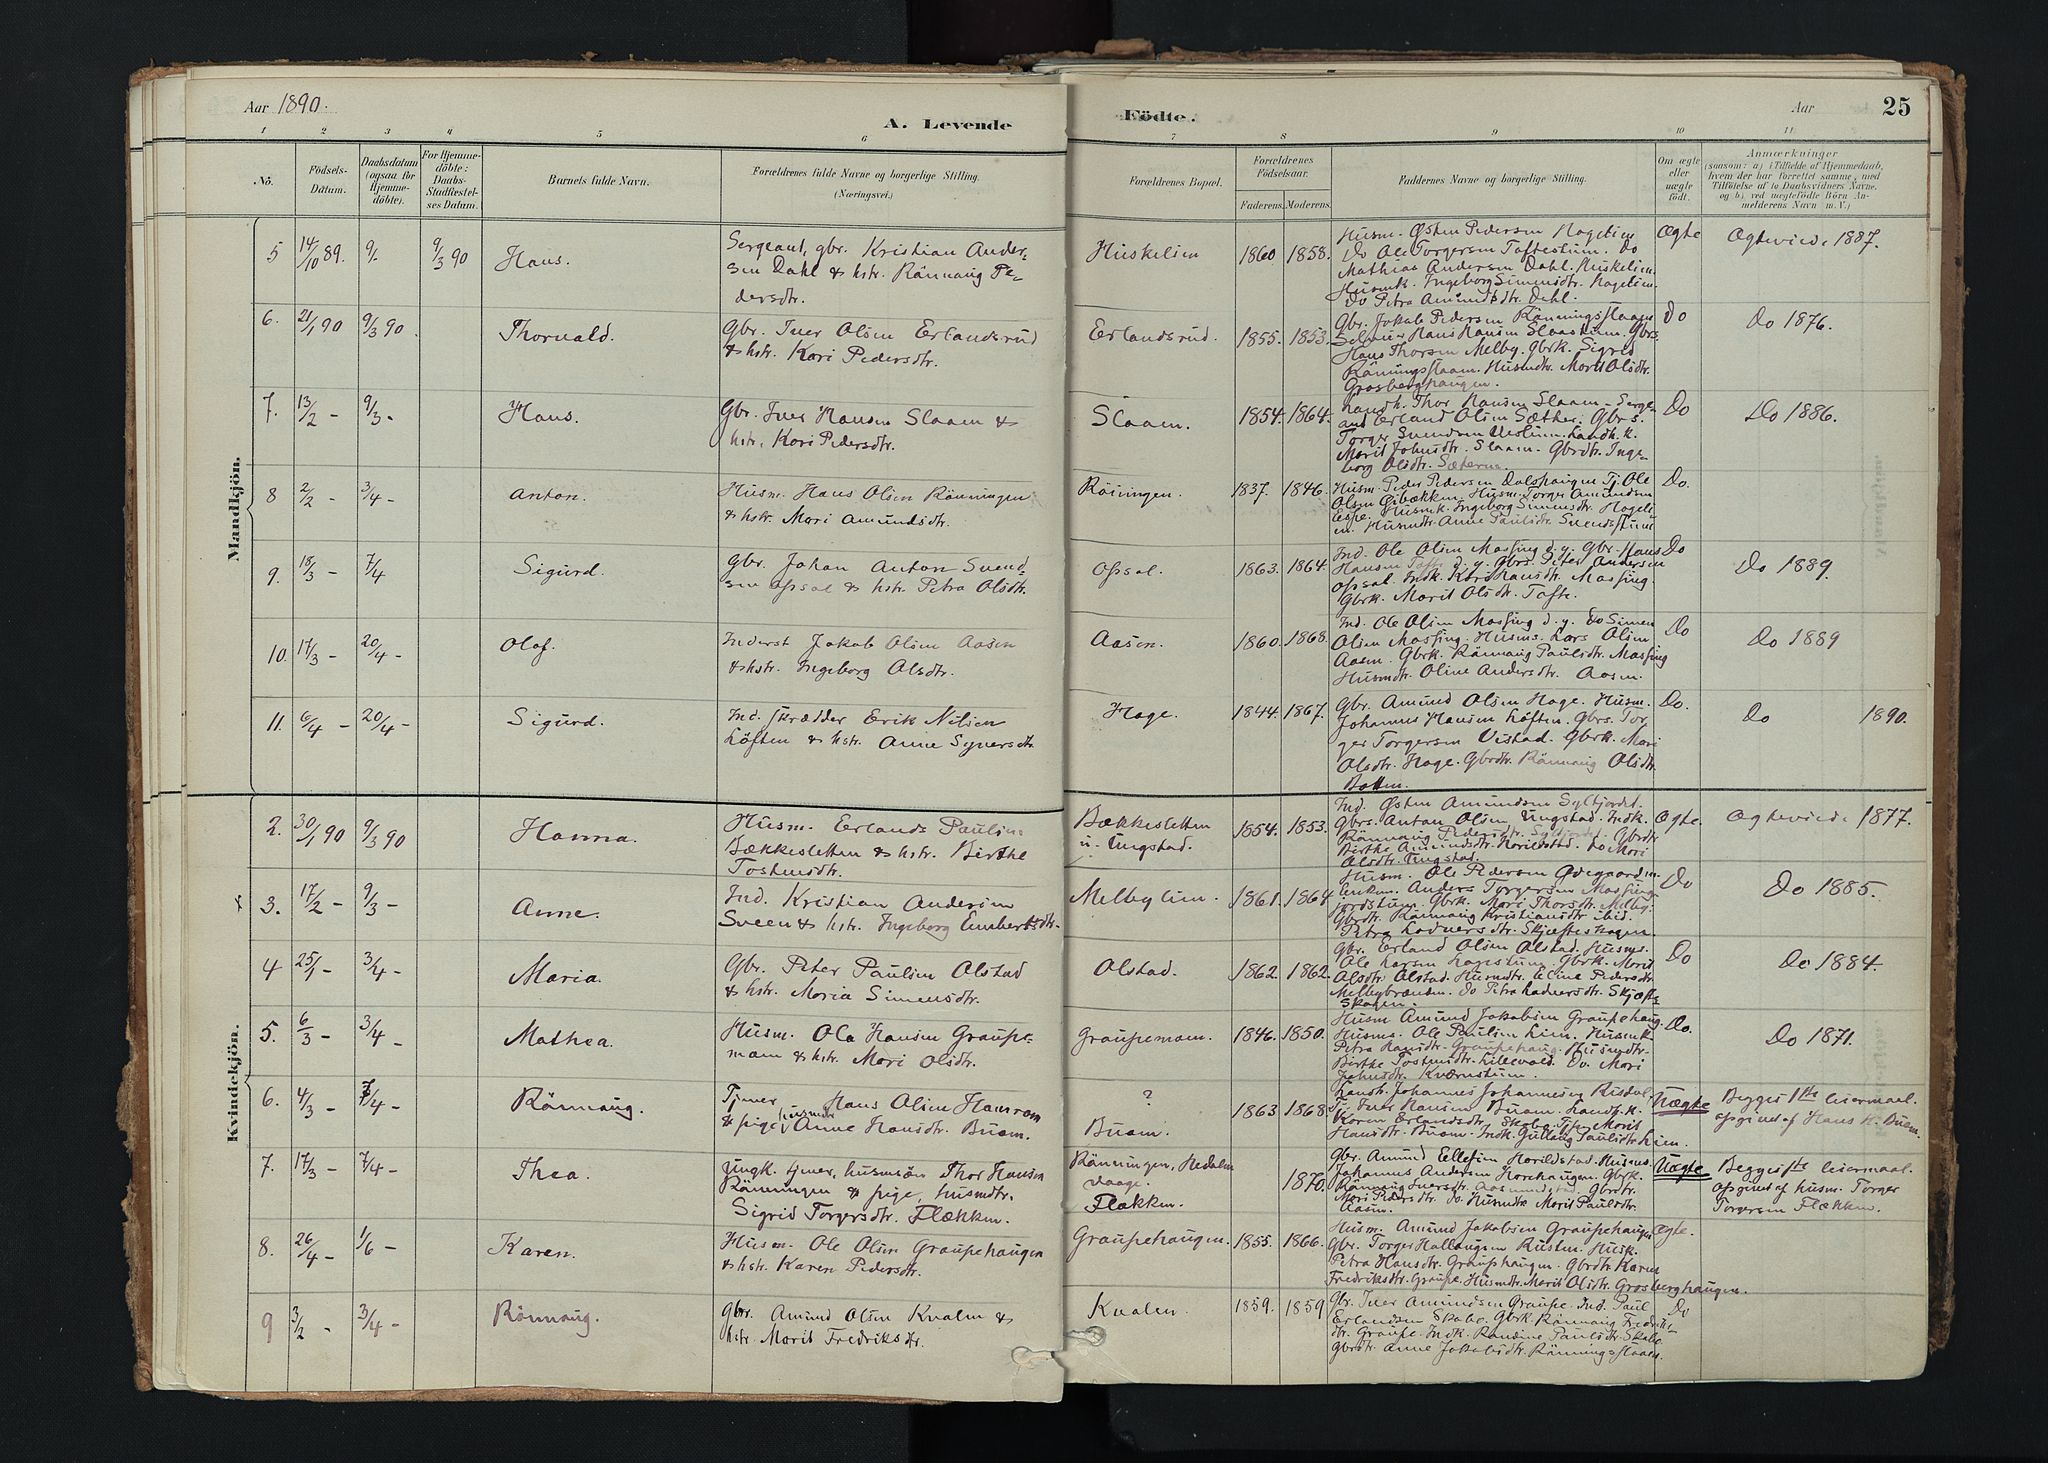 Aar 1890.
A. Levende
Födte.
Aar
25
1 2 3 4 5 6 7 8 9 10 11
No.
Födsels-
Datum.
Daabsdatum
(ogsaa for
Hjemme-
döbte).
For Hjemme-
döbte:
Daabs-
Stadfæstel-
ses Datum.
Barnets fulde Navn.
Forældrenes fulde Navne og borgerlige Stilling.
(Næringsvei.)
Forældrenes Bopæl.
Forældrenes
Födselsaar.
Faderens. Moderens.
Faddernes Navne og borgerlige Stilling.
Om ægte
eller
uægte
födt.
Anmærkninger
(saasom: a) i Tilfælde af Hjemmedaab,
hvem der har forrettet samme, med
Tilföielse af to Daabsvidners Navne,
og b) ved uægtefödte Börn An-
melderens Navn m. V.)
Mandkjön.
5 14/10 89. 9/- 9/3 90 Hans.
Sergeant, gbr. Kristian Ander-
sen Dahl & hstr. Rönnaug Pe-
dersdtr.
Huskelien 1860 1858.
Husm. Østen Pedersen Hagelien
Do Ole Torgersen Toftestuen. Do
Mathias Andersen Dahl. Huskelien.
Husmk. Ingeborg Simensdtr. Hagelien.
Do Petra Amundsdtr. Dahl.
Ægte Ægteviede 1887.
6. 21/1 90 9/3 90 Thorvald.
Gbr. Iver Olsen Erlandsrud
& hstr. Kari Pedersdtr.
Erlandsrud. 1855. 1853.
Gbr. Jakob Pedersen Rönningsslaaen
Hans Hansen Slaastuen. Gbrs.
Hans Thorsen Melby. Gbrk. Sigrid
Rönningsslaaen. Husmdtr. Marit Olsdtr.
Grosberghaugen.
Do Do 1876.
7. 13/2 - 9/3 - Hans.
Gbr. Iver Hansen Slaaen &
hstr. Kari Pedersdtr.
Slaaen. 1854. 1864.
Landh. Thor Hansen Slaaen - Serge-
ant Erland Olsen Sæther. Gbrs.
Torger Svendsen Landh.k.
Marit Johnsdtr. Slaaen. Gbrdtr. Inge-
borg Olsdtr. Sæteren.
Do Do 1886.
8 2/2 - 3/4 - Anton.
Husm. Hans Olsen Rönningen
& hstr. Mari Amundsdtr.
Röningen. 1837. 1846.
Husm. Peder Pedersen Dalshaugen Tj. Ole
Olsen Gibækken. Husm. Torger Amundsen
Espe. Husmk. Ingeborg Simensdtr. Hageli-
en. Husmdtr. Anne Paulsdtr. Svendsstuen
Do.
9. 18/3 - 7/4 Sigurd.
Gbr. Johan Anton Svend-
sen Opsal & hstr. Petra Olsdtr.
Opsal. 1863. 1864.
Ind. Ole Olsen Massing d.y. Gbr. Hans
Hansen Tofte d.y. Gbrs. Peter Andersen
Opsal. Indk. Kari Hansdtr. Massing.
Gbrk. Marit Olsdtr. Tofte.
Do Do 1889.
10. 17/3 - 20/4 - Olaf.
Inderst Jakob Olsen Aasen
& hstr. Ingeborg Olsdtr.
Aasen. 1860. 1868.
Ind. Ole Olsen Massing d.y. Do Simen
Olsen Massing. Husms. Lars Olsen
Aasen. Gbrk. Rönnaug Paulsdtr. Massing
Husmdtr. Oline Andersdtr. Aasen.
Do Do 1889
11. 6/4 - 20/4 - Sigurd.
Ind. skrædder Erik Nilsen
Löften & hstr. Anne Syversdtr.
Hage. 1844. 1867.
Gbr. Amund Olsen Hage. Husm.
Johannes Hansen Löften. Gbrs. Tor-
ger Torgersen Vistad. Gbrk. Mari
Olsdtr. Hage. Gbrdtr. Rönnaug Olsdtr.
Botten.
Do. Do 1890.
Kvindekjön.
2. 30/1 90 9/3 90 Hanna.
Husm. Erlands Paulsen
Bækkesletten & hstr. Birthe
Tostensdtr.
Bækkesletten
u. Ungstad. 1854. 1853.
Ind. Østen Amundsen Sylfjordet.
Gbrs. Anton Olsen Ungstad. Indk.
Rönnaug Pedersdtr. Gbrdtr
Birthe Amundsdtr. Harildstad. Do Mari
Olsdtr. Ungstad.
Ægte. Ægteviede 1877.
x 3. 17/2 - 9/3 - Anne.
Ind. Kristian Andersen
Sveen & hstr. Ingeborg Embertsdtr.
Melbylien. 1861. 1864
Husm. Ole Pedersen Ødegaarden.
Enkem. Anders Torgersen Massing-
jordstuen. Gbrk. Mari Thorsdtr. Melby.
Gbrdtr. Rönnaug Kristiansdtr. ibid.
Petra Lodversdtr. Skjæfteshagen.
Do Do 1885.
4 25/1 - 3/4 - Maria.
Gbr. Peter Paulsen Olstad
& hstr. Maria Simensdtr.
Olstad. 1862. 1862.
Gbr. Erland Olsen Olstad. Husms.
Ole Larsen Lagestuen. Gbrk. Marit
Olsdtr. Olstad. Husmdtr. Eline Pedersdtr.
Melbybrænden. Do Petra Lodversdtr. Skjæfte-
skagen.
Do Do 1884.
5. 6/3 - 3/4 - Mathea.
Husm. Ola Hansen Graupe-
moen & hstr. Mari Olsdtr.
Graupemoen. 1846. 1850.
Husm Amund Jakobsen Graupehaug.
Husms. Ole Paulsen Lien. Husmk.
Petra Hansdtr. Graupehaug. Husmdtr.
Birthe Tostensdtr. Lillevold. Do. Mari
Johnsdtr. Kværnstuen.
Do. Do 1871.
6. 4/3 - 7/4 - Rönnaug.
Tjener Hans Olsen Hamrom
& pige, Anne Hansdtr. Buam.
?
Buam. 1863 1868.
Landh. Johannes Johannesen Risdal
Tj. Iver Hansen Buam. Landh.k.
Karen Erlandsdtr. Skabo. Tjp. Marit
Hansdtr. Buam. Indk. Gullaug Paulsdtr. Lien.
Uægte Begges 1ste leiermaal.
opgivet af Hans H. Buam.
7. 17/3 - 7/4 - Thea.
Ungk. tjener, husmsön Thor Hansen
Rönningen & pige, husmdtr.
Sigrid Torgersdtr. Flækken.
Rönningen, Hedalen
Vaage.
Flækken. 1870.
Gbr. Amund Ellefsen Harildstad. Husms.
Johannes Andersen Gbrk.
Rönnaug Iversdtr. Gbrdtr.
Mari Pedersdtr. Do. Husmdtr. Marit Paulsdtr.
Aasen.
Uægte Begges 1ste leiermaal.
opgivet af husm. Torger
Torgersen Flækken.
8. 26/4 - 1/6 - Karen.
Husm. Ole Olsen Graupehaugen
& hstr. Karen Pedersdtr.
Graupehaugen. 1855. 1866.
Husm. Amund Jakobsen Graupehaugen
Gbr. Torger Hallingsen Rusten. Husk.
Petra Hansdtr. Graupehaugen. Gbrdtr. Karen
Fredriksdtr. Graupe. Husmdtr. Marit Olsdtr. Grosberghaugen.
Ægte.
9 3/2 - 3/4 - Rönnaug.
Gbr. Amund Olsen Kvalen &
hstr. Marit Fredriksdtr.
Kvalen. 1859. 1859
Gbr. Iver Amundsen Graupe. Ind. Paul
Erlandsen Skabo. Gbrk. Rönnaug Fredriks-
dtr. Graupe. Indk. Randine Paulsdtr. Skabo
Gbrdtr. Anne Jakobsdtr. Rönningsslaaen.
Do